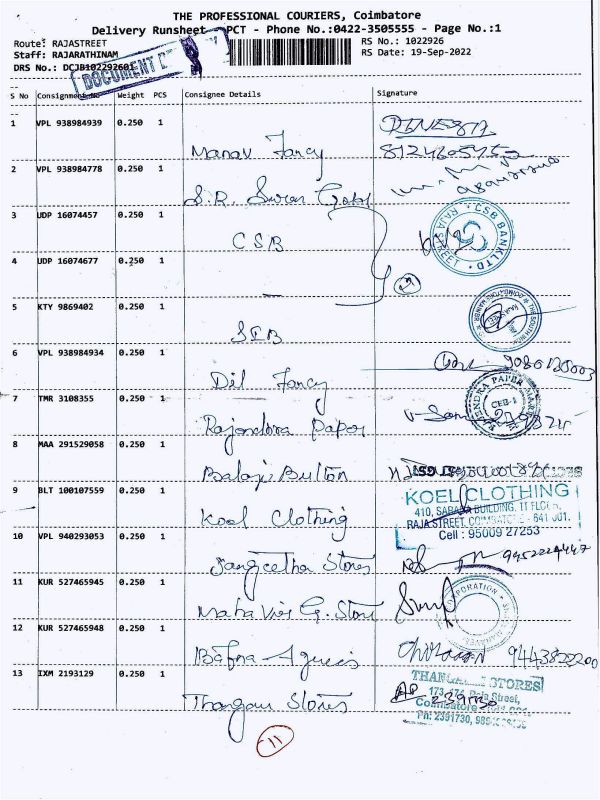 THE PROFESSIONAL COURIERS, Coimbatore
Delivery Runsheet - PCT - Phone No.:0422-3505555 - Page No.:1
Route: RAJASTREET
RS No.: 1022926
Staff: RAJARATHINAM
RS Date: 19-Sep-2022
DRS No.: DCJB102292601
DOCUMENT
S No Consignment No Weight PCS Consignee Details Signature
1 VPL 938984939 0.250 1
Manav Fancy
DINESH
2 VPL 938984778 0.250 1
S.R. Suran
3 UDP 16074457 0.250 1
CSB
CSB BANK LTD
RAJA STREET
4 UDP 16074677 0.250 1
5 KTY 9869402 0.250 1
SIB
6 VPL 938984934 0.250 1
Dil Fancy
7 TMR 3108355 0.250 1
Rajendra Paper
RAJENDRA PAPER MART
CEB-1
8 MAA 291529058 0.250 1
Balaji Button
9 BLT 100107559 0.250 1
Koel Clothing
KOEL CLOTHING
410, BUILDING, II FLOOR,
RAJA STREET, COIMBATORE - 641 001.
Cell : 95009 27253
10 VPL 940293053 0.250 1
Sangeetha Stores
11 KUR 527465945 0.250 1
Mahavir G. Store
12 KUR 527465948 0.250 1
Bafna Agencis
9443822200
13 IXM 2193129 0.250 1
Thangam Stores
THANGAM STORES
Raja Street,
Coimbatore
Ph: 2391730,
11